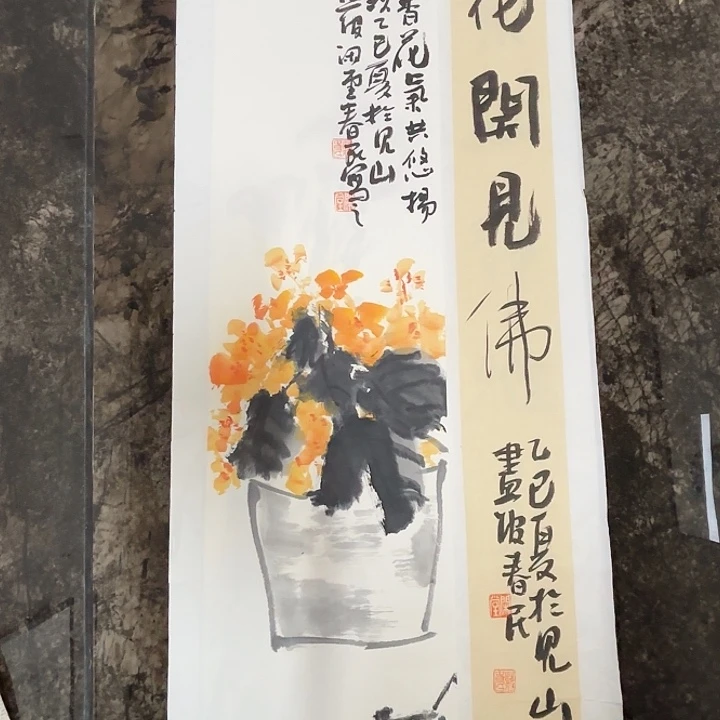 花開見佛
乙巳夏於見山
畫陂春民
香花氣共悠揚
乙巳夏於見山
春民寫之